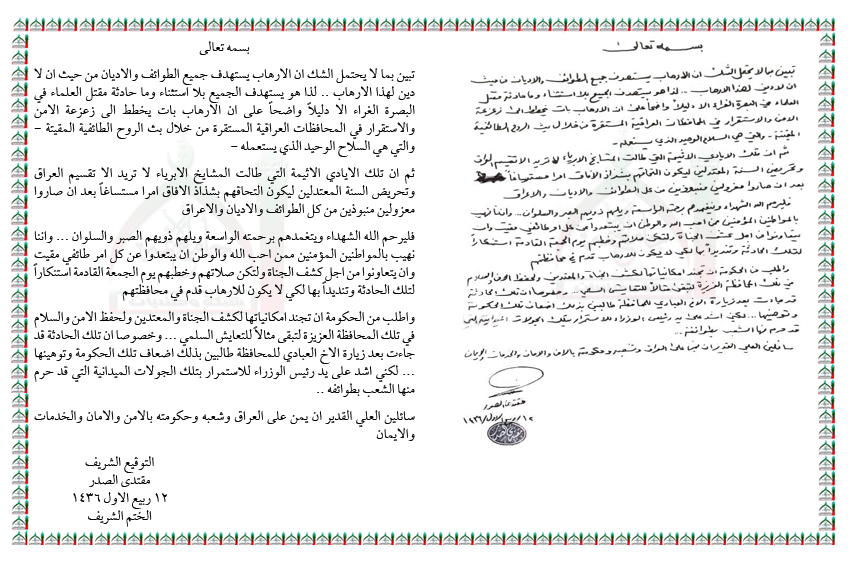 بسمه تعالى
تبين بما لا يحتمل الشك ان الارهاب يستهدف جميع الطوائف والاديان من حيث ان لا
دين لهذا الارهاب .. لذا هو يستهدف الجميع بلا استثناء وما حادثة مقتل العلماء في
البصرة الغراء الا دليلاً واضحاً على ان الارهاب بات يخطط الى زعزعة الامن
والاستقرار في المحافظات العراقية المستقرة من خلال بث الروح الطائفية المقيتة –
والتي هي السلاح الوحيد الذي يستعمله –
ثم ان تلك الايادي الاثيمة التي طالت المشايخ الابرياء لا تريد الا تقسيم العراق
وتحريض السنة المعتدلين ليكون التحاقهم بشذاذ الافاق امرا مستساغاً بعد ان صاروا
معزولين منبوذين من كل الطوائف والاديان والاعراق
فليرحم الله الشهداء ويتغمدهم برحمته الواسعة ويلهم ذويهم الصبر والسلوان ... واننا
نهيب بالمواطنين المؤمنين ممن احب الله والوطن ان يبتعدوا عن كل امر طائفي مقيت
وان يتعاونوا من اجل كشف الجناة ولتكن صلاتهم وخطبهم يوم الجمعة القادمة استنكاراً
لتلك الحادثة وتنديداً بها لكي لا يكون للارهاب قدم في محافظتهم
واطلب من الحكومة ان تجند امكانياتها لكشف الجناة والمعتدين ولحفظ الامن والسلام
في تلك المحافظة العزيزة لتبقى مثالاً للتعايش السلمي ... وخصوصا ان تلك الحادثة قد
جاءت بعد زيارة الاخ العبادي للمحافظة طالبين بذلك اضعاف تلك الحكومة وتوهينها
... لكني اشد على يد رئيس الوزراء للاستمرار بتلك الجولات الميدانية التي قد حرم
منها الشعب بطوائفه ..
سائلين العلي القدير ان يمن على العراق وشعبه وحكومته بالامن والامان والخدمات
والايمان
التوقيع الشريف
مقتدى الصدر
١٢ ربيع الاول ١٤٣٦
الختم الشريف
بسمه تعالى
تبين بما لا يحتمل الشك ان الارهاب يستهدف جميع الطوائف والاديان من حيث
ان لا دين لهذا الارهاب .. لذا هو يستهدف الجميع بلا استثناء وما حادثة مقتل
العلماء في البصرة الغراء الا دليلاً واضحاً على ان الارهاب بات يخطط الى زعزعة
الامن والاستقرار في المحافظات العراقية المستقرة من خلال بث الروح الطائفية
المقيتة - والتي هي السلاح الوحيد الذي يستعمله -
ثم ان تلك الايادي الاثيمة التي طالت المشايخ الابرياء لا تريد الا تقسيم العراق
وتحريض السنة المعتدلين ليكون التحاقهم بشذاذ الافاق امرا مستساغاً
بعد ان صاروا معزولين منبوذين من كل الطوائف والاديان والاعراق
فليرحم الله الشهداء ويتغمدهم برحمته الواسعة ويلهم ذويهم الصبر والسلوان .. واننا نهيب
بالمواطنين المؤمنين ممن احب الله والوطن ان يبتعدوا عن كل امر طائفي مقيت وان
يتعاونوا من اجل كشف الجناة ولتكن صلاتهم وخطبهم يوم الجمعة القادمة استنكاراً
لتلك الحادثة وتنديداً بها لكي لا يكون للارهاب قدم في محافظتهم
واطلب من الحكومة ان تجند امكانياتها لكشف الجناة والمعتدين ولحفظ الامن والسلام
في تلك المحافظة العزيزة لتبقى مثالاً للتعايش السلمي .. وخصوصا ان تلك الحادثة
قد جاءت بعد زيارة الاخ العبادي للمحافظة طالبين بذلك اضعاف تلك الحكومة
وتوهينها .. لكني اشد على يد رئيس الوزراء للاستمرار بتلك الجولات الميدانية التي
قد حرم منها الشعب بطوائفه ..
سائلين العلي القدير ان يمن على العراق وشعبه وحكومته بالامن والامان والخدمات والايمان
مقتدى الصدر
١٢ ربيع الاول ١٤٣٦